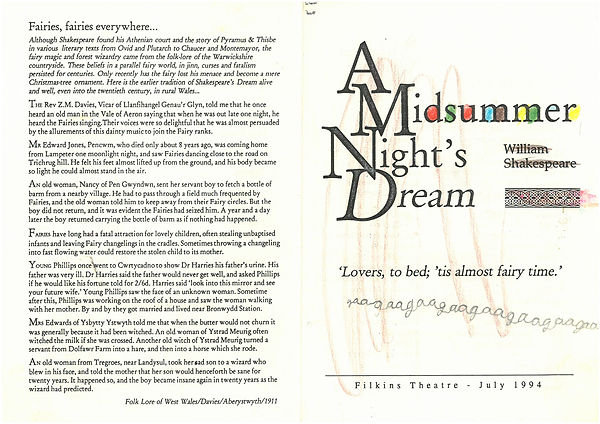 Fairies, fairies everywhere...
Although Shakespeare found his Athenian court and the story of Pyramus & Thisbe
in various literary texts from Ovid and Plutarch to Chaucer and Montemayor, the
fairy magic and forest wizardry came from the folk-lore of the Warwickshire
countryside. These beliefs in a parallel fairy world, in jinn, curses and fatalism
persisted for centuries. Only recently has the fairy lost his menace and become a mere
Christmas-tree ornament. Here is the earlier tradition of Shakespeare's Dream alive
and well, even into the twentieth century, in rural Wales...
THE Rev Z.M. Davies, Vicar of Llanfihangel Genau'r Glyn, told me that he once
heard an old man in the Vale of Aeron saying that when he was out late one night, he
heard the Fairies singing. Their voices were so delightful that he was almost persuaded
by the allurements of this dainty music to join the Fairy ranks.
MR Edward Jones, Pencwm, who died only about 8 years ago, was coming home
from Lampeter one moonlight night, and saw Fairies dancing close to the road on
Trichrug hill. He felt his feet almost lifted up from the ground, and his body became
so light he could almost stand in the air.
AN old woman, Nancy of Pen Gwyndwn, sent her servant boy to fetch a bottle of
barm from a nearby village. He had to pass through a field much frequented by
Fairies, and the old woman told him to keep away from their Fairy circles. But the
boy did not return, and it was evident the Fairies had seized him. A year and a day
later the boy returned carrying the bottle of barm as if nothing had happened.
FAIRIES have long had a fatal attraction for lovely children, often stealing unbaptised
infants and leaving Fairy changelings in the cradles. Sometimes throwing a changeling
into fast flowing water could restore the stolen child to its mother.
YOUNG Phillips once went to Cwrtycadno to show Dr Harries his father's urine. His
father was very ill. Dr Harries said the father would never get well, and asked Phillips
if he would like his fortune told for 2/6d. Harries said 'look into this mirror and see
your future wife.' Young Phillips saw the face of an unknown woman. Sometime
after this, Phillips was working on the roof of a house and saw the woman walking
with her mother. By and by they got married and lived near Bronwydd Station.
MRS Edwards of Ysbytty Ystwyth told me that when the butter would not churn it
was generally because it had been witched. An old woman of Ystrad Meurig often
witched the milk if she was crossed. Another old witch of Ystrad Meurig turned a
servant from Dolfawr Farm into a hare, and then into a horse which she rode.
AN old woman from Tregroes, near Landysul, took her sad son to a wizard who
blew in his face, and told the mother that her son would henceforth be sane for
twenty years. It happened so, and the boy became insane again in twenty years as the
wizard had predicted.
Folk Lore of West Wales/Davies/Aberystwyth/1911
A
Midsummer
Night's
Dream
William
Shakespeare
'Lovers, to bed; 'tis almost fairy time.'
Filkins Theatre - July 1994